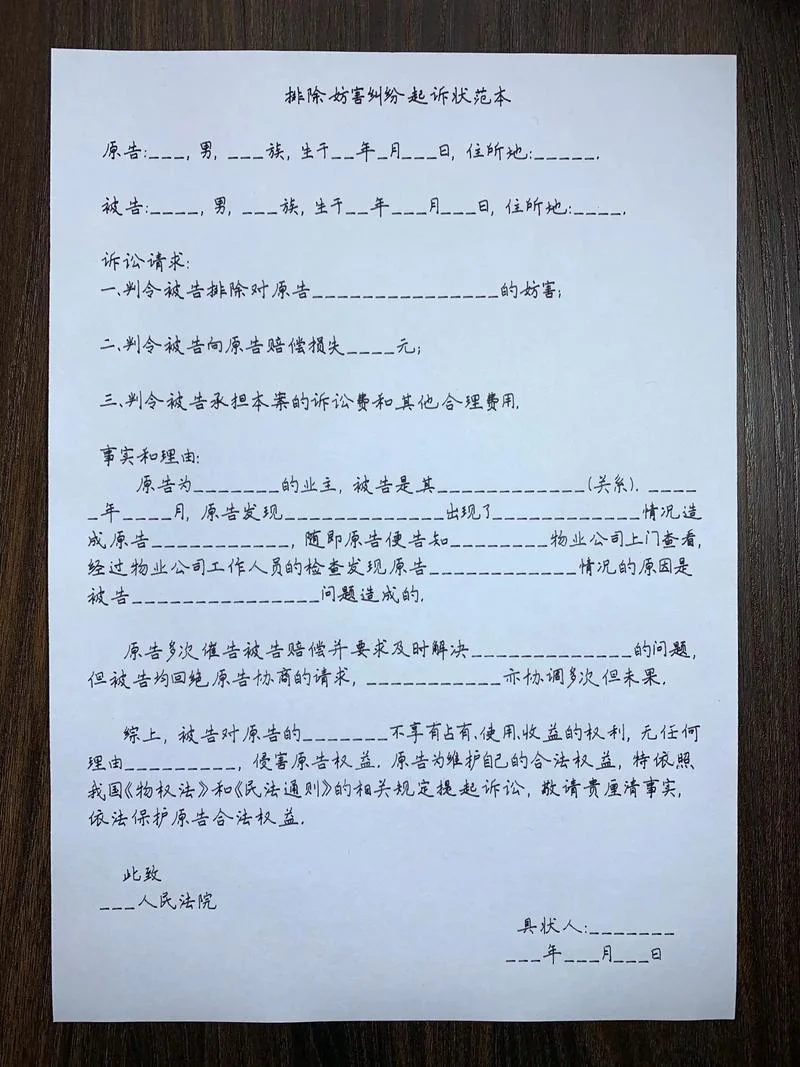 排除妨害纠纷起诉状范本
原告:___, 男, ___族, 生于__年_月___日, 住所地:_____.
被告:____, 男, ___族, 生于__年___月___日, 住所地:____.
诉讼请求:
一、判令被告排除对原告________________的妨害;
二、判令被告向原告赔偿损失____元;
三、判令被告承担本案的诉讼费和其他合理费用.
事实和理由:
原告为_______的业主, 被告是其____________(关系). ____
_年____月, 原告发现_____________出现了____________情况造
成原告___________, 随即原告便告知________物业公司上门查看,
经过物业公司工作人员的检查发现原告____________情况的原因是
被告________________问题造成的.
原告多次催告被告赔偿并要求及时解决_____________的问题,
但被告均回绝原告协商的请求, ___________亦协调多次但未果.
综上, 被告对原告的_______不享有占有、使用、收益的权利, 无任何
理由_________, 侵害原告权益. 原告为维护自己的合法权益, 特依照
我国《物权法》和《民法通则》的相关规定提起诉讼, 敬请贵厘清事实,
依法保护原告合法权益.
此致
___人民法院
具状人:_______
___年___月___日